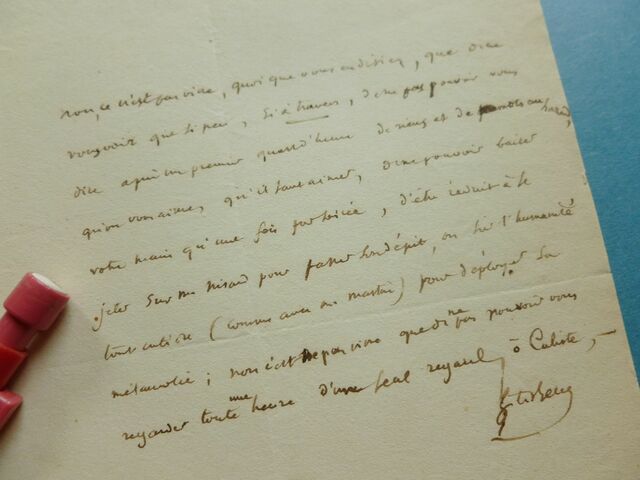 non, ce n'est pas vivre, quoique vous en disiez, que de ne
vous voir que si peu, si à travers, de ne pas pouvoir vous
dire après un premier quart d'heure de riens et de mots au hasard,
qu'on vous aime, qu'il faut aimer, de ne pouvoir baiser
votre main qu'une fois par soirée, d'être réduit à se
jeter sur un pour passer son dépit, ou sur l'humanité
tout entière (comme avec m) pour déployer sa
mélancolie; non ce n'est pas vivre que de ne pas pouvoir vous
regarder toute une heure d'un seul regard, ô Caliste, —
Ste Beuve